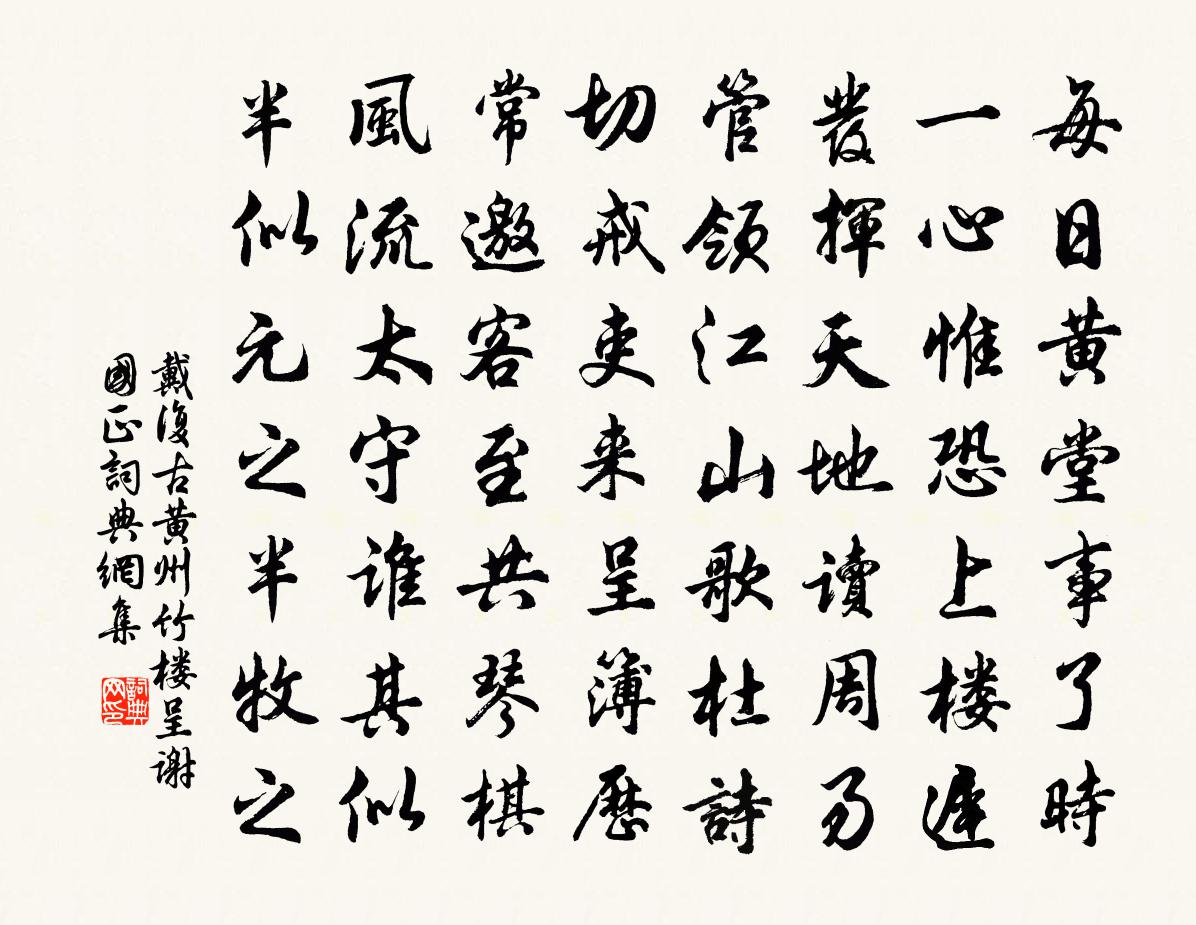 每日黄堂事了時
一心惟恐上楼遲
發揮天地讀周易
管領江山歌杜詩
切戒吏来呈簿歷
常邀客至共琴棋
風流太守誰其似
半似元之半牧之
戴復古黄州竹楼呈謝
國正詞典網集
詞典网印